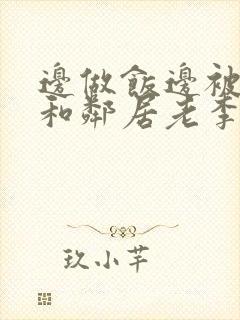 邊做飯邊被
和鄰居老李
玖小芊